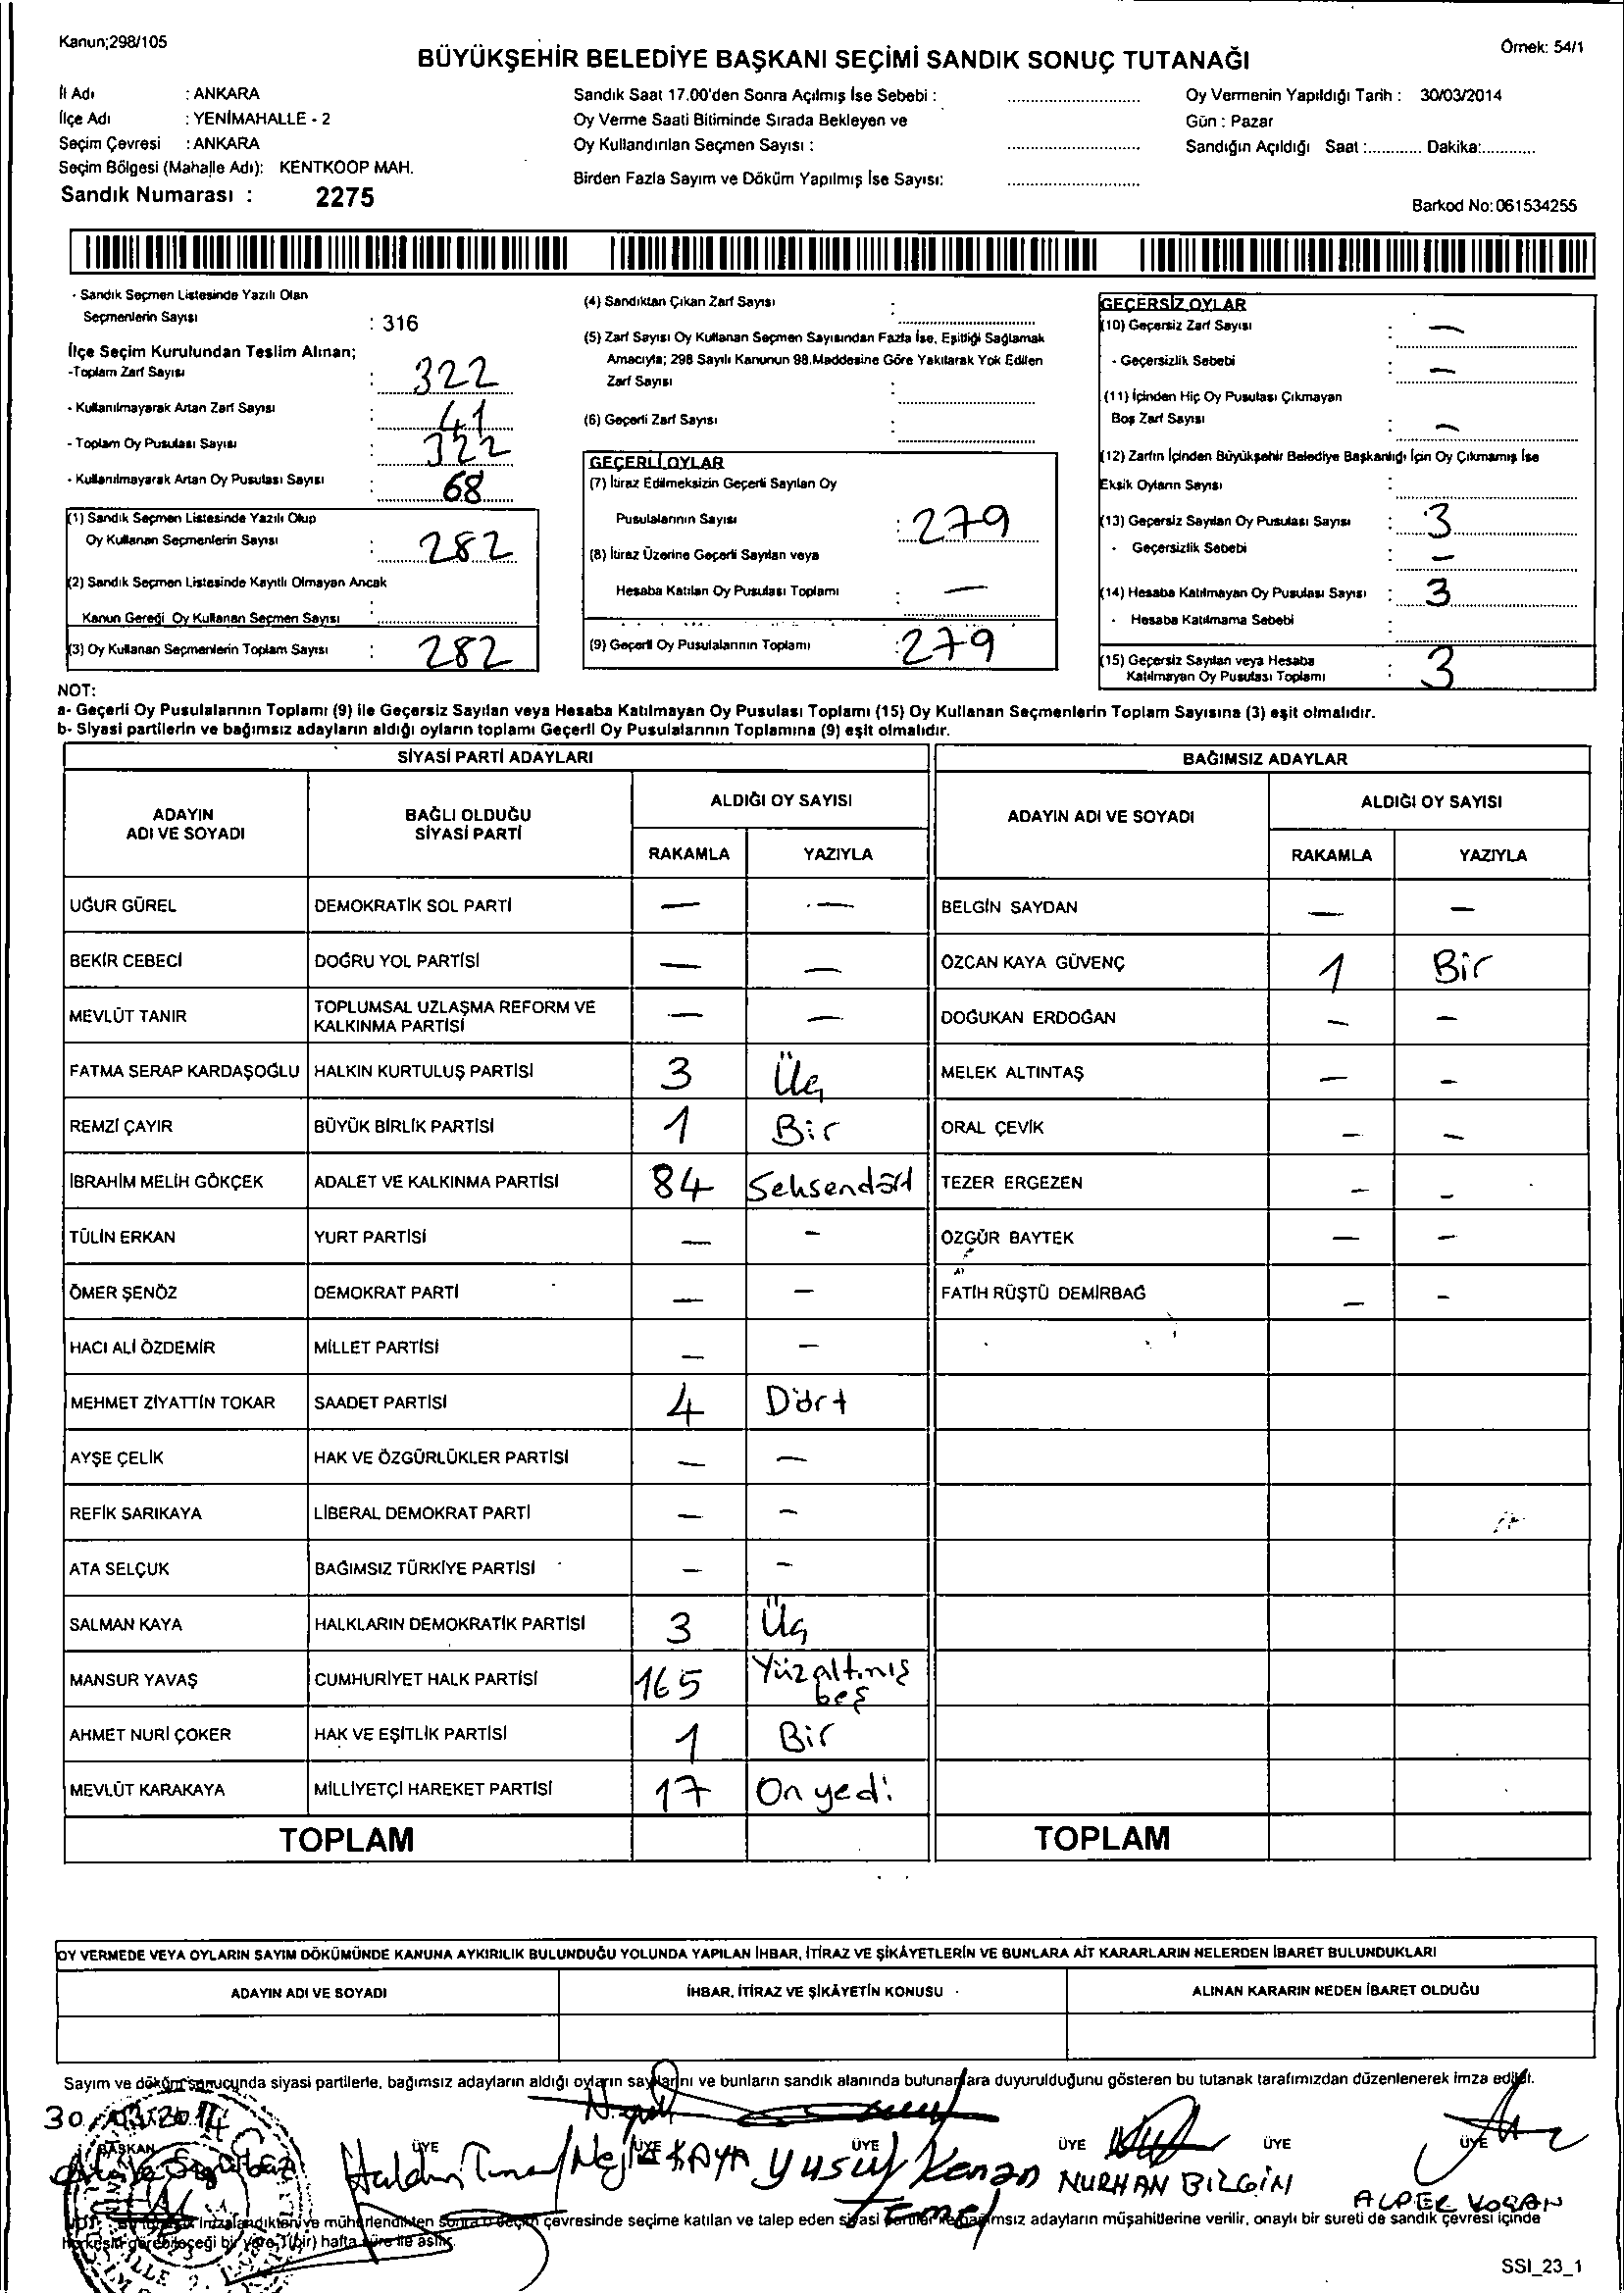 Kanun;298/105
Örnek: 54/1
BÜYÜKŞEHİR BELEDİYE BAŞKANI SEÇİMİ SANDIK SONUÇ TUTANAĞI
İl Adı : ANKARA
İlçe Adı : YENİMAHALLE - 2
Seçim Çevresi : ANKARA
Seçim Bölgesi (Mahalle Adı): KENTKOOP MAH.
Sandık Numarası : 2275
Sandık Saat 17.00'den Sonra Açılmış İse Sebebi :
Oy Verme Saati Bitiminde Sırada Bekleyen ve
Oy Kullandırılan Seçmen Sayısı :
Birden Fazla Sayım ve Döküm Yapılmış İse Sayısı:
Oy Vermenin Yapıldığı Tarih : 30/03/2014
Gün : Pazar
Sandığın Açıldığı Saat :............ Dakika:............
Barkod No: 061534255
- Sandık Seçmen Listesinde Yazılı Olan
Seçmenlerin Sayısı : 316
İlçe Seçim Kurulundan Teslim Alınan;
-Toplam Zarf Sayısı : 322
- Kullanılmayarak Artan Zarf Sayısı : 41
- Toplam Oy Pusulası Sayısı : 322
- Kullanılmayarak Artan Oy Pusulası Sayısı : 68
(1) Sandık Seçmen Listesinde Yazılı Olup
Oy Kullanan Seçmenlerin Sayısı : 282
(2) Sandık Seçmen Listesinde Kayıtlı Olmayan Ancak
Kanun Gereği Oy Kullanan Seçmen Sayısı :
(3) Oy Kullanan Seçmenlerin Toplam Sayısı : 282
(4) Sandıktan Çıkan Zarf Sayısı :
(5) Zarf Sayısı Oy Kullanan Seçmen Sayısından Fazla İse, Eşitliği Sağlamak
Amacıyla; 298 Sayılı Kanunun 98.Maddesine Göre Yakılarak Yok Edilen
Zarf Sayısı :
(6) Geçerli Zarf Sayısı :
GEÇERLİ OYLAR
(7) İtiraz Edilmeksizin Geçerli Sayılan Oy
Pusulalarının Sayısı : 279
(8) İtiraz Üzerine Geçerli Sayılan veya
Hesaba Katılan Oy Pusulası Toplamı : —
(9) Geçerli Oy Pusulalarının Toplamı : 279
GEÇERSİZ OYLAR
(10) Geçersiz Zarf Sayısı : —
- Geçersizlik Sebebi : —
(11) İçinden Hiç Oy Pusulası Çıkmayan
Boş Zarf Sayısı : —
(12) Zarfın İçinden Büyükşehir Belediye Başkanlığı İçin Oy Çıkmamış İse
Eksik Oyların Sayısı :
(13) Geçersiz Sayılan Oy Pusulası Sayısı : 3
- Geçersizlik Sebebi : —
(14) Hesaba Katılmayan Oy Pusulası Sayısı : 3
- Hesaba Katılmama Sebebi :
(15) Geçersiz Sayılan veya Hesaba
Katılmayan Oy Pusulası Toplamı : 3
NOT:
a- Geçerli Oy Pusulalarının Toplamı (9) ile Geçersiz Sayılan veya Hesaba Katılmayan Oy Pusulası Toplamı (15) Oy Kullanan Seçmenlerin Toplam Sayısına (3) eşit olmalıdır.
b- Siyasi partilerin ve bağımsız adayların aldığı oyların toplamı Geçerli Oy Pusulalarının Toplamına (9) eşit olmalıdır.
SİYASİ PARTİ ADAYLARI
BAĞIMSIZ ADAYLAR
ADAYIN
ADI VE SOYADI
BAĞLI OLDUĞU
SİYASİ PARTİ
ALDIĞI OY SAYISI
RAKAMLA YAZIYLA
ADAYIN ADI VE SOYADI
ALDIĞI OY SAYISI
RAKAMLA YAZIYLA
UĞUR GÜREL DEMOKRATİK SOL PARTİ — — BELGİN SAYDAN — —
BEKİR CEBECİ DOĞRU YOL PARTİSİ — — ÖZCAN KAYA GÜVENÇ 1 Bir
MEVLÜT TANIR TOPLUMSAL UZLAŞMA REFORM VE KALKINMA PARTİSİ — — DOĞUKAN ERDOĞAN — —
FATMA SERAP KARDAŞOĞLU HALKIN KURTULUŞ PARTİSİ 3 Üç MELEK ALTINTAŞ — —
REMZİ ÇAYIR BÜYÜK BİRLİK PARTİSİ 1 Bir ORAL ÇEVİK — —
İBRAHİM MELİH GÖKÇEK ADALET VE KALKINMA PARTİSİ 84 Seksendört TEZER ERGEZEN — —
TÜLİN ERKAN YURT PARTİSİ — — ÖZGÜR BAYTEK — —
ÖMER ŞENÖZ DEMOKRAT PARTİ — — FATİH RÜŞTÜ DEMİRBAĞ — —
HACI ALİ ÖZDEMİR MİLLET PARTİSİ — —
MEHMET ZİYATTİN TOKAR SAADET PARTİSİ 4 Dört
AYŞE ÇELİK HAK VE ÖZGÜRLÜKLER PARTİSİ — —
REFİK SARIKAYA LİBERAL DEMOKRAT PARTİ — —
ATA SELÇUK BAĞIMSIZ TÜRKİYE PARTİSİ — —
SALMAN KAYA HALKLARIN DEMOKRATİK PARTİSİ 3 Üç
MANSUR YAVAŞ CUMHURİYET HALK PARTİSİ 165 Yüzaltmış beş
AHMET NURİ ÇOKER HAK VE EŞİTLİK PARTİSİ 1 Bir
MEVLÜT KARAKAYA MİLLİYETÇİ HAREKET PARTİSİ 17 On yedi
TOPLAM TOPLAM
OY VERMEDE VEYA OYLARIN SAYIM DÖKÜMÜNDE KANUNA AYKIRILIK BULUNDUĞU YOLUNDA YAPILAN İHBAR, İTİRAZ VE ŞİKÂYETLERİN VE BUNLARA AİT KARARLARIN NELERDEN İBARET BULUNDUKLARI
ADAYIN ADI VE SOYADI İHBAR, İTİRAZ VE ŞİKÂYETİN KONUSU ALINAN KARARIN NEDEN İBARET OLDUĞU
Sayım ve döküm sonucunda siyasi partilerle, bağımsız adayların aldığı oyların sayılarını ve bunların sandık alanında bulunanlara duyurulduğunu gösteren bu tutanak tarafımızdan düzenlenerek imza edildi.
30.03.2014
BAŞKAN ÜYE ÜYE ÜYE ÜYE ÜYE ÜYE
Haldun KAYA Yusuf Kenan Temel NURHAN BİLGİN ALPER
imzalandıktan ve mühürlendikten sonra o seçim çevresinde seçime katılan ve talep eden siyasi partiler ile bağımsız adayların müşahitlerine verilir, onaylı bir sureti de sandık çevresi içinde
herkesin görebileceği bir yere 1(bir) hafta süre ile asılır.
SSI_23_1